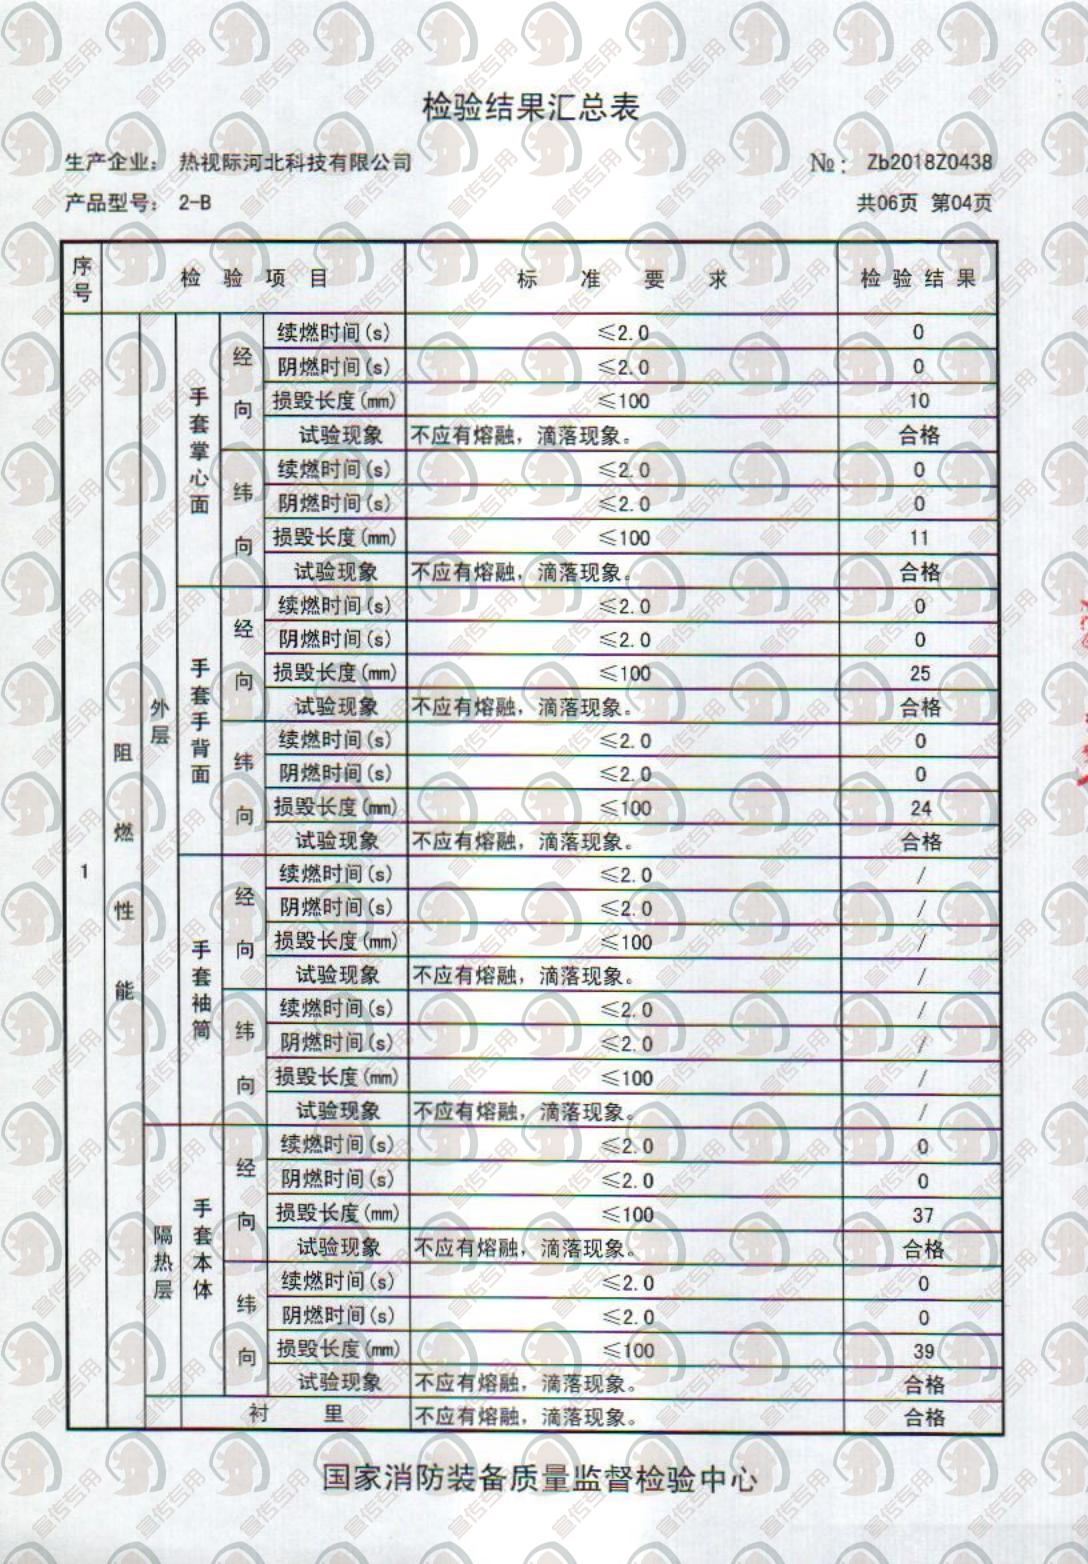 检验结果汇总表
生产企业： 热视际河北科技有限公司 №： Zb2018Z0438
产品型号： 2-B 共06页 第04页
序号 检验项目 标准要求 检验结果
1 阻燃性能 外层 手套掌心面 经向 续燃时间(s) ≤2.0 0
阴燃时间(s) ≤2.0 0
损毁长度(mm) ≤100 10
试验现象 不应有熔融，滴落现象。 合格
纬向 续燃时间(s) ≤2.0 0
阴燃时间(s) ≤2.0 0
损毁长度(mm) ≤100 11
试验现象 不应有熔融，滴落现象。 合格
手套手背面 经向 续燃时间(s) ≤2.0 0
阴燃时间(s) ≤2.0 0
损毁长度(mm) ≤100 25
试验现象 不应有熔融，滴落现象。 合格
纬向 续燃时间(s) ≤2.0 0
阴燃时间(s) ≤2.0 0
损毁长度(mm) ≤100 24
试验现象 不应有熔融，滴落现象。 合格
手套袖筒 经向 续燃时间(s) ≤2.0 /
阴燃时间(s) ≤2.0 /
损毁长度(mm) ≤100 /
试验现象 不应有熔融，滴落现象。 /
纬向 续燃时间(s) ≤2.0 /
阴燃时间(s) ≤2.0 /
损毁长度(mm) ≤100 /
试验现象 不应有熔融，滴落现象。 /
隔热层 手套本体 经向 续燃时间(s) ≤2.0 0
阴燃时间(s) ≤2.0 0
损毁长度(mm) ≤100 37
试验现象 不应有熔融，滴落现象。 合格
纬向 续燃时间(s) ≤2.0 0
阴燃时间(s) ≤2.0 0
损毁长度(mm) ≤100 39
试验现象 不应有熔融，滴落现象。 合格
衬里 不应有熔融，滴落现象。 合格
国家消防装备质量监督检验中心
宣传专用